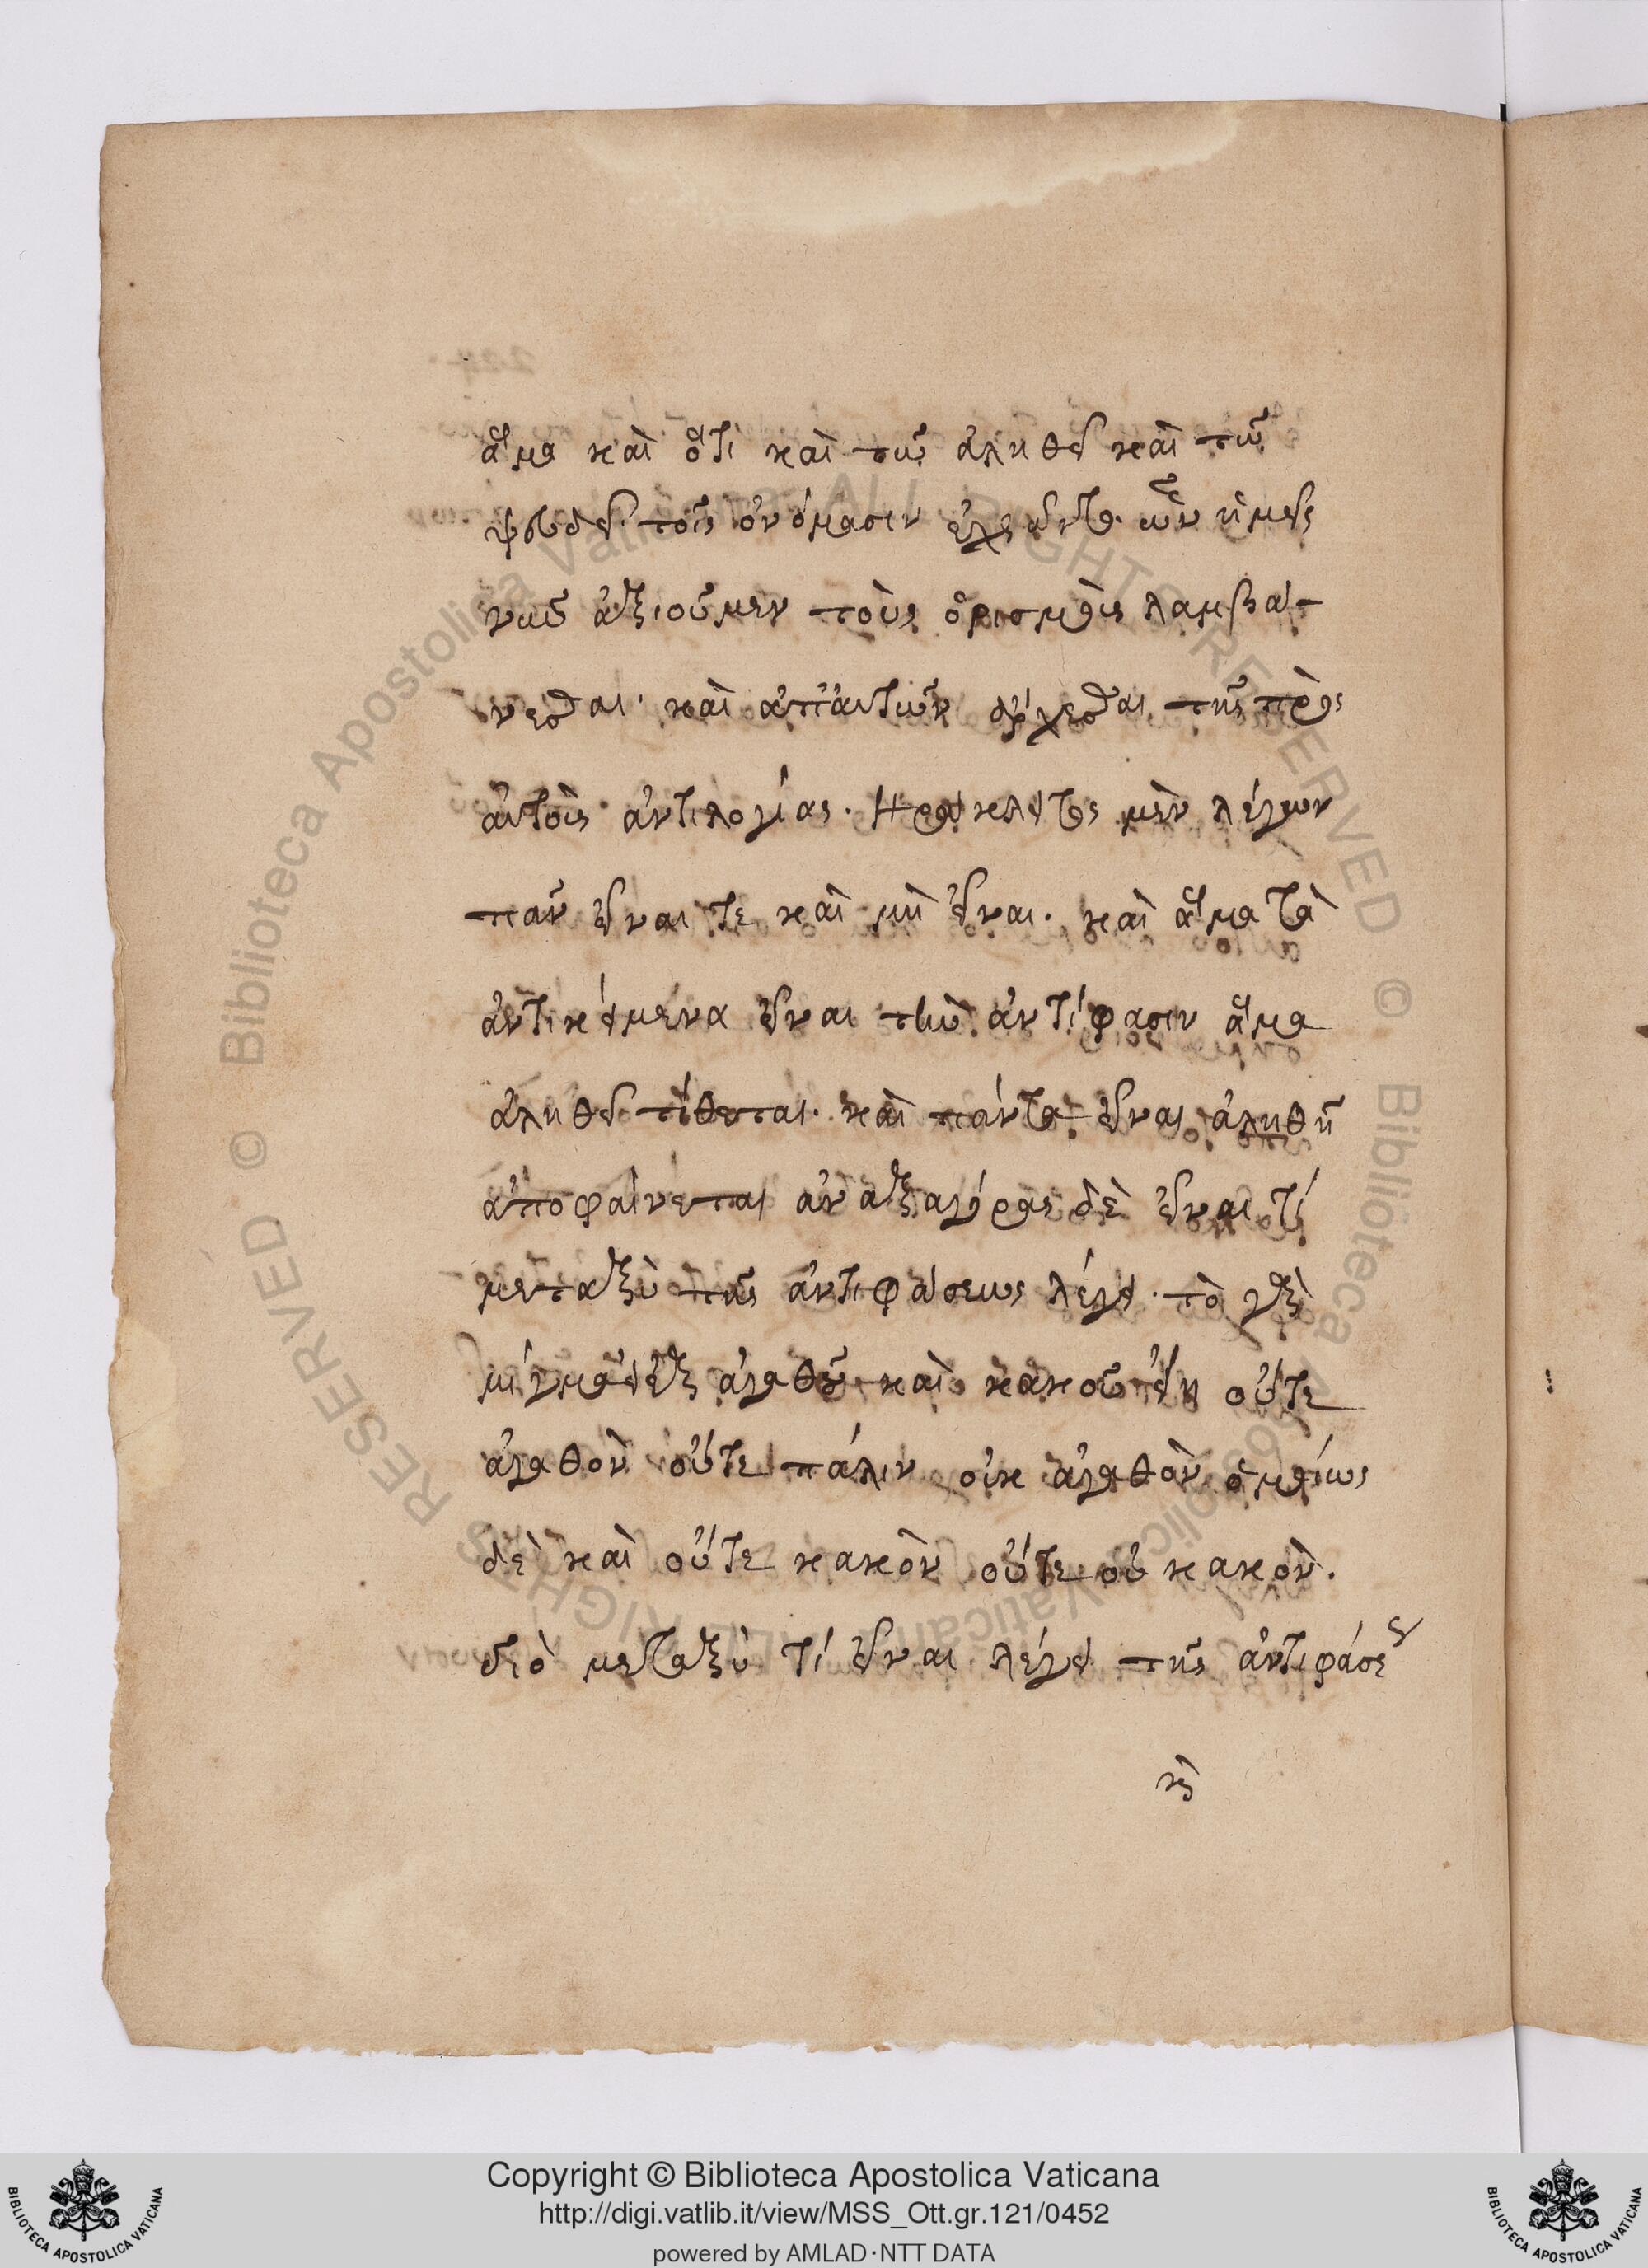 ἅμα καὶ ὅτι καὶ τῷ ἀληθεῖ καὶ τῷ
ψευδεῖ τοῖς ὀνόμασιν ὧν ἡμεῖς
νῦν ἀξιοῦμεν τοὺς ὁρισμοὺς λαμβά-
νεσθαι· καὶ ἀπ' αὐτῶν ἄρχεσθαι τῆς πρὸς
αὐτοὺς ἀντιλογίας. Ηράκλειτος μὲν λέγων
παν εἶναι τε καὶ μὴ εἶναι. καὶ ἅμα τὰ
ἀντικείμενα εἶναι τὴν ἀντίφασιν ἅμα
ἀληθεῖ τίθεται. καὶ πάντα εἶναι ἀληθῆ
ἀποφαίνεται ἀναξαγόρας δὲ εἶναι τί
μεταξὺ τῆς ἀντιφάσεως λέγει. τὸ γὰρ
μίγμα ἐξ ἀγαθοῦ καὶ κακοῦ οὔτε
ἀγαθὸν οὔτε πάλιν οὐκ ἀγαθὸν ὁμοίως
δὲ καὶ οὔτε κακὸν οὔτε οὐ κακὸν.
διὸ μεταξὺ τί εἶναι λέγει τῆς ἀντιφάσεως
κὶ
Copyright © Biblioteca Apostolica Vaticana
http://digi.vatlib.it/view/MSS_Ott.gr.121/0452
powered by AMLAD·NTT DATA
BIBLIOTECA APOSTOLICA VATICANA
BIBLIOTECA APOSTOLICA VATICANA